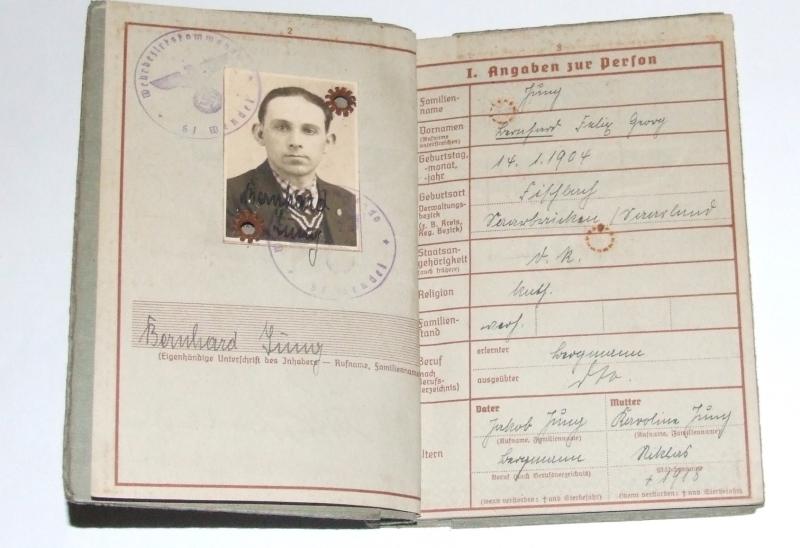 2
Wehrbezirkskommando
St. Wendel
Bernhard
Jung
Bernhard Jung
(Eigenhändige Unterschrift des Inhabers — Rufname, Familienname)
3
I. Angaben zur Person
Familien-
name
Jung
Vornamen
(Rufname
unterstreichen)
Bernhard Felix Georg
Geburtstag,
-monat,
-jahr
14.1.1904
Geburtsort
Verwaltungs-
bezirk
(z. B. Kreis,
Reg. Bezirk)
Fischbach
Saarbrücken / Saarland
Staatsan-
gehörigkeit
(auch frühere)
D. R.
Religion
kath.
Familien-
stand
verh.
Beruf
(nach
Berufs-
verzeichnis)
erlernter
Bergmann
ausgeübter
dto.
Eltern
Vater
Jakob Jung
(Rufname, Familienname)
Bergmann
Beruf (nach Berufsverzeichnis)
(wenn verstorben: † und Sterbejahr)
Mutter
Karoline Jung
(Rufname, Familienname)
Niklas
Mädchenname
† 1918
(wenn verstorben: † und Sterbejahr)